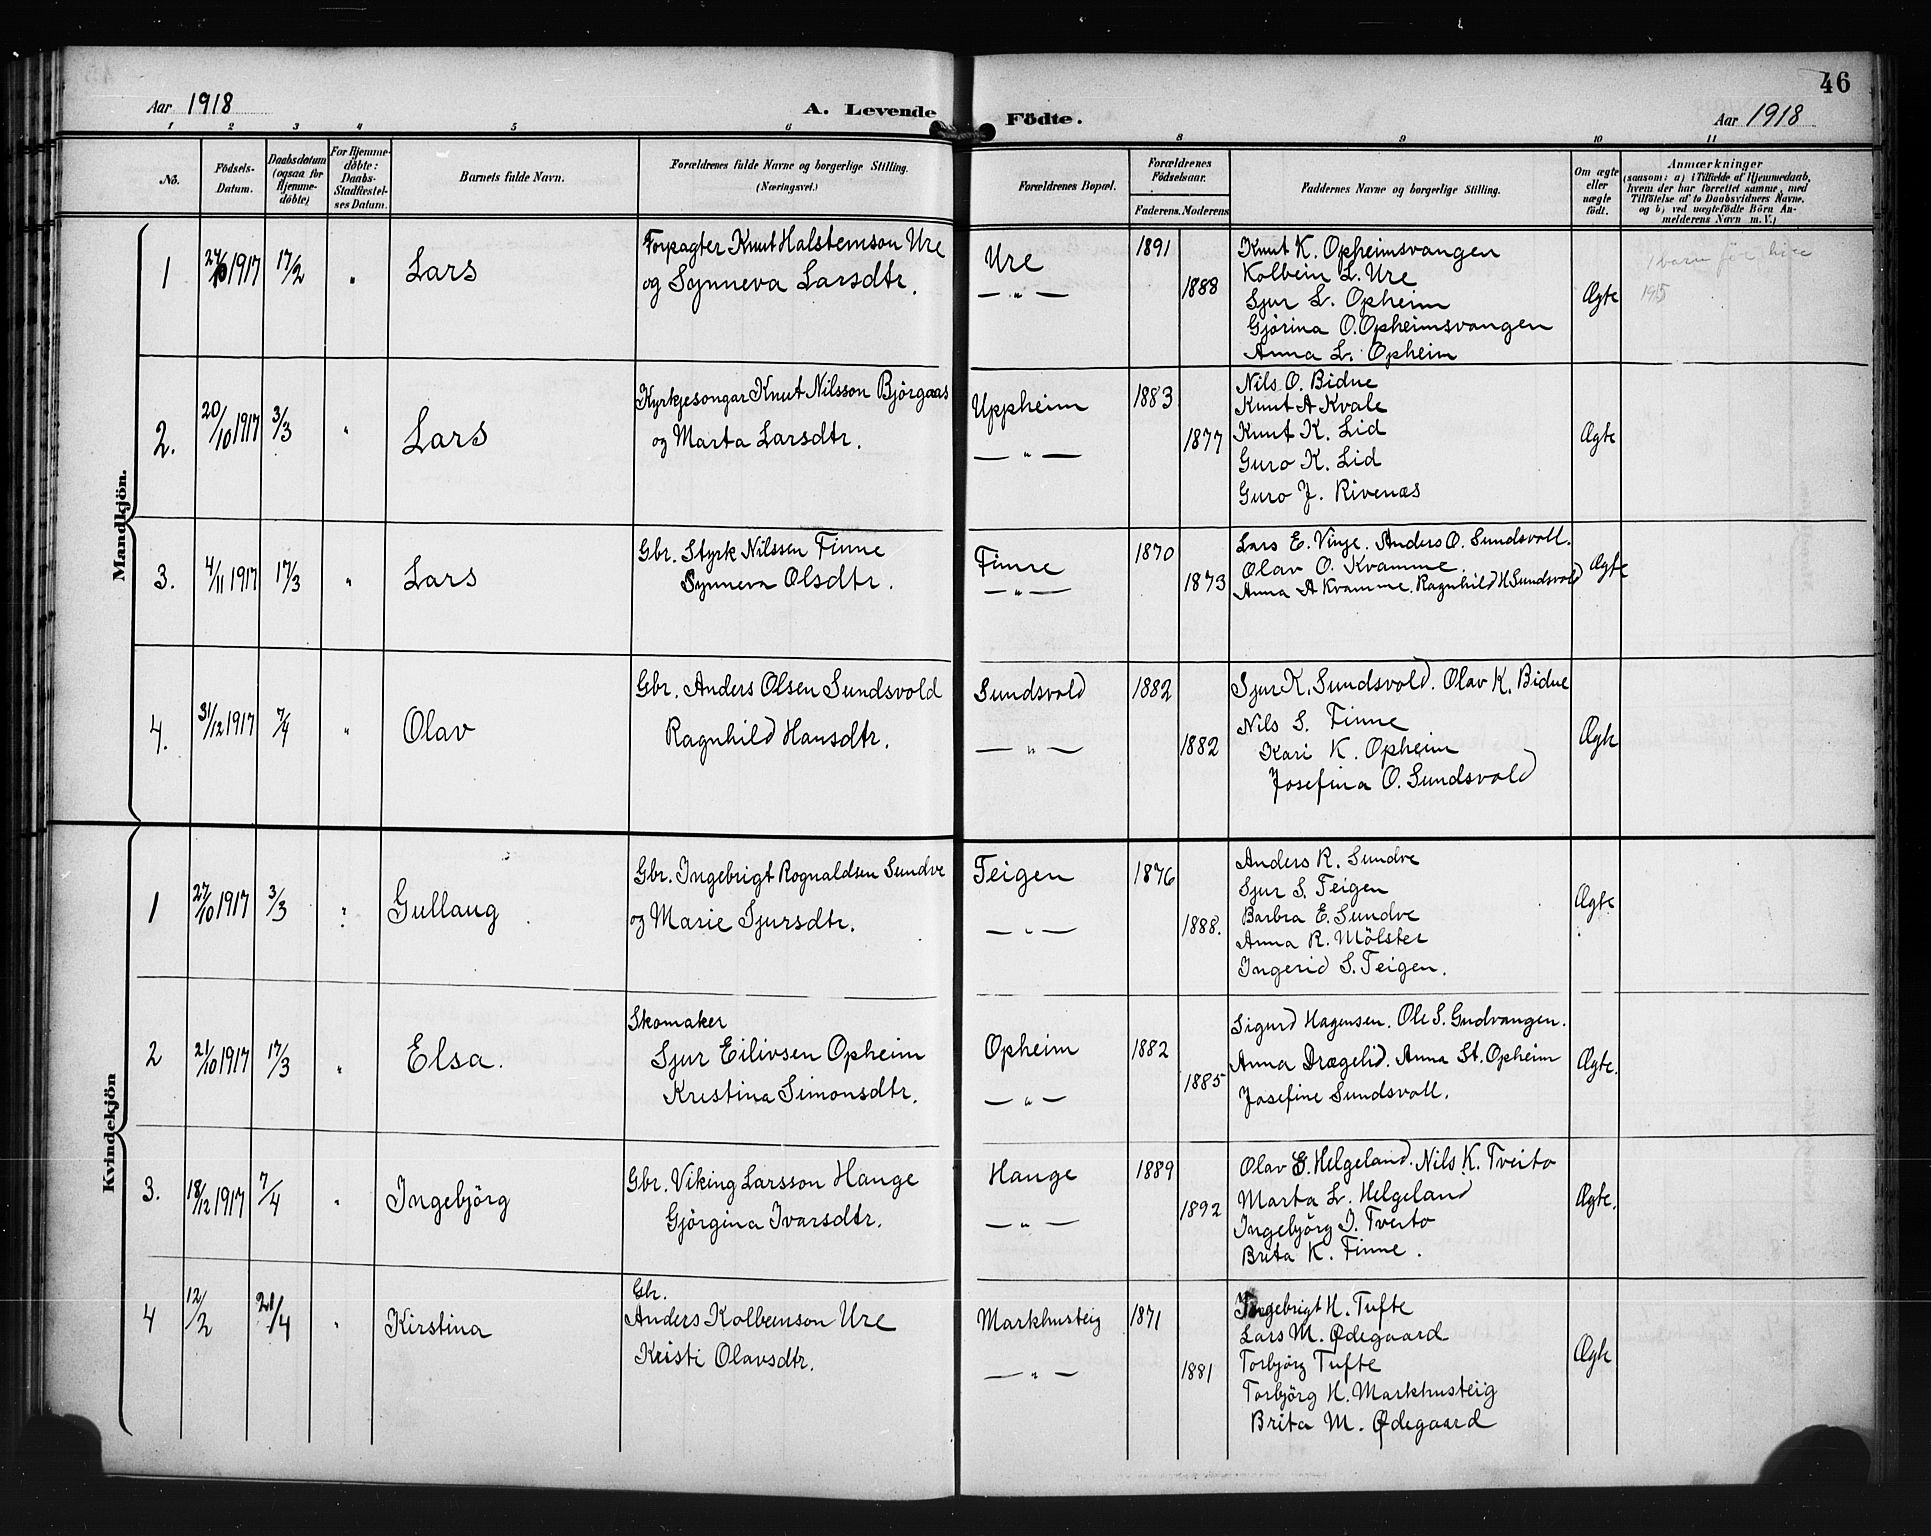 46
Aar 1918
A. Levende Födte.
Aar 1918
1 2 3 4 5 6 8 9 10 11
No.
Födsels-Datum.
Daabsdatum (ogsaa for Hjemme-döbte)
For Hjemme-döbte: Daabs-Stadfæstel-ses Datum.
Barnets fulde Navn.
Forældrenes fulde Navne og borgerlige Stilling. (Næringsvei.)
Forældrenes Bopæl.
Forældrenes Födselsaar.
Faderens. Moderens
Faddernes Navne og borgerlige Stilling.
Om ægte eller uægte födt.
Anmærkninger
(saasom: a) i Tilfælde af Hjemmedaab, hvem der har forrettet samme, med Tilföielse af to Daabsvidners Navne. og b) ved uægtefödte Börn An-melderens Navn m. V.)
Mandkjön.
1 1917 17/2 " Lars
Forpagter Knut Halstemson Ure
og Synneva Larsdtr.
Ure
— " —
1891
1888
Knut K. Opheimsvangen
Kolbein L. Ure
Sjur L. Opheim
Gjörina O. Opheimsvangen
Anna L. Opheim
Ægte
1 barn før
1915
2. 20/10 1917 3/3 " Lars
Kyrkjesongar Knut Nilsson Björgaas
og Marta Larsdtr.
Uppheim
— " —
1883
1877
Nils O. Bidne
Knut A Kvale
Knut K. Lid
Guro K. Lid
Guro J. Rivenæs
Ægte
3. 4/11 1917 17/3 " Lars
Gbr. Styrk Nilssen Finne
Synneva Olsdtr.
Finne
— " —
1870
1873
Lars E. Vinje. Anders O. Sundsvoll.
Olav O. Kvamme.
Anna A Kvamme. Ragnhild H Sundsvold
Ægte
4. 31/12 1917 7/4 " Olav
Gbr. Anders Olsen Sundsvold
Ragnhild Hansdtr.
Sundsvold
— " —
1882
1882
Sjur K. Sundsvold. Olav K. Bidne
Nils S. Finne
Kari K. Opheim
Josefina O. Sundsvold
Ægte
Kvindekjön
1 27/10 1917 3/3 " Gullaug
Gbr. Ingebrigt Rognaldsen Sundve
og Marie Sjursdtr.
Teigen
— " —
1876
1888.
Anders R. Sundve
Sjur S. Teigen
Barbra E. Sundve
Anna R. Mölster
Ingerid S. Teigen.
Ægte
2 21/10 1917 17/3 " Elsa.
Skomaker
Sjur Eilivsen Opheim
Kristina Simonsdtr.
Opheim
— " —
1882
1885
Sigurd Hagensen. Ole S. Gudvangen.
Anna Drægelid. Anna St. Opheim
Josefine Sundsvoll.
Ægte.
3. 18/12 1917 7/4 " Ingebjörg
Gbr. Viking Larsson Hauge
Gjörgina Ivarsdtr.
Hauge
— " —
1889
1892
Olav G. Helgeland. Nils K. Tveito
Marta L. Helgeland
Ingebjörg I. Tveito
Brita K. Finne.
Ægte.
4 12/2 21/4 " Kirstina
Gbr.
Anders Kolbeinson Ure
Kristi Olavsdtr.
Markhusteig
— " —
1871
1881
Ingebrigt H. Tufte
Lars M. Ødegaard
Torbjörg Tufte
Torbjörg H. Markhusteig
Brita M. Ødegaard
Ægte